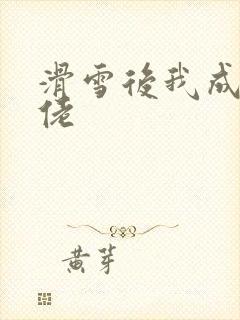 滑雪後我成
佬
黄芽